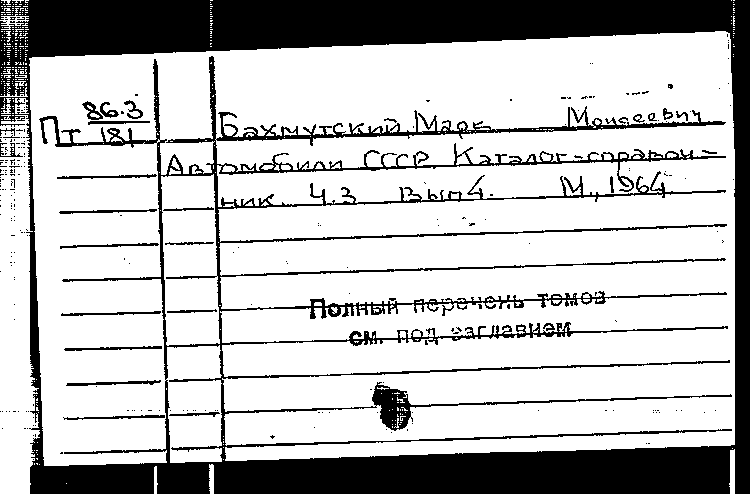 86.3
Пт 181 Бахмутский, Марк Моисеевич
Автомобили СССР. Каталог-справоч-
ник. Ч.3 Вып 4. М., 1964
Полный перечень томов
см. под заглавием